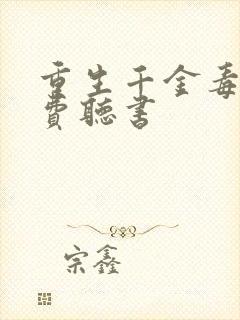 重生千金毒
費聽書
宗鑫